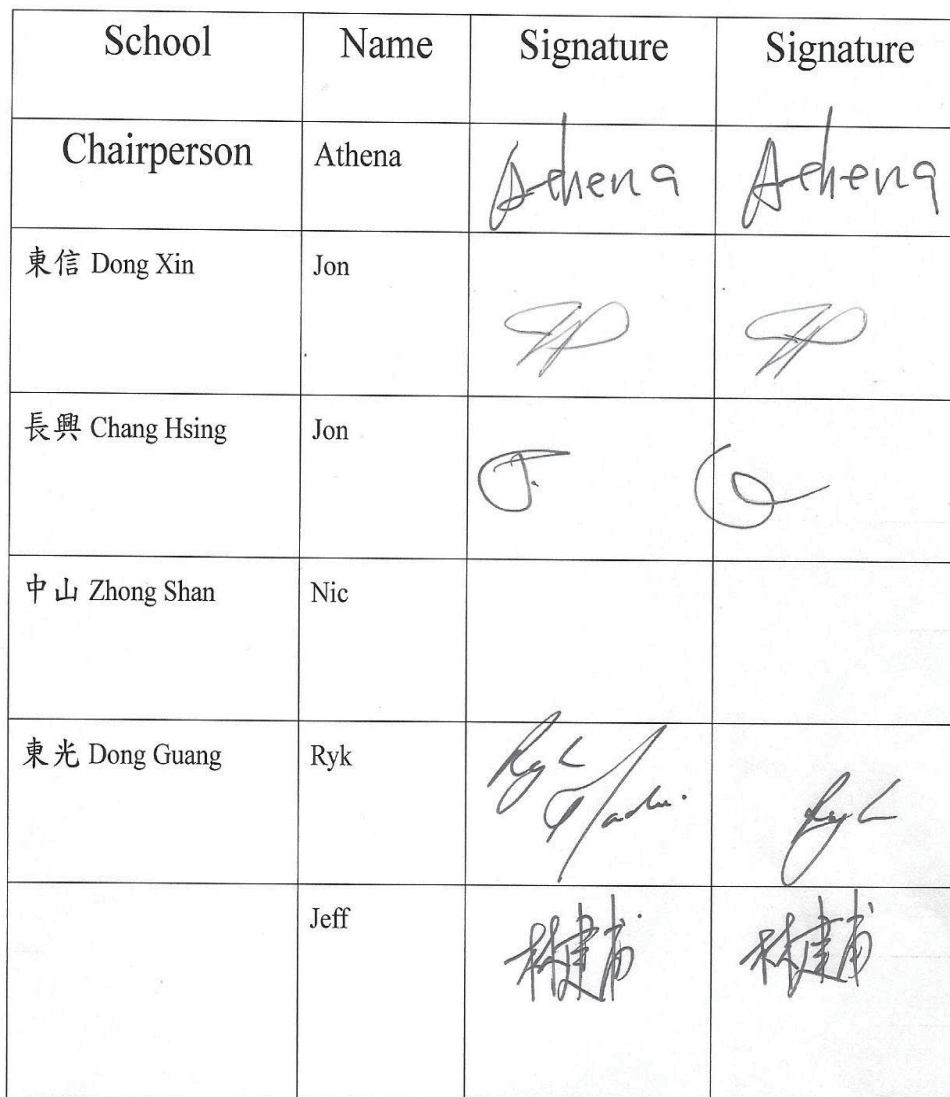 School Name Signature Signature
Chairperson Athena Athena Athena
東信 Dong Xin Jon
長興 Chang Hsing Jon J.
中山 Zhong Shan Nic
東光 Dong Guang Ryk Ryk Ryk
Jeff 林建甫 林建甫